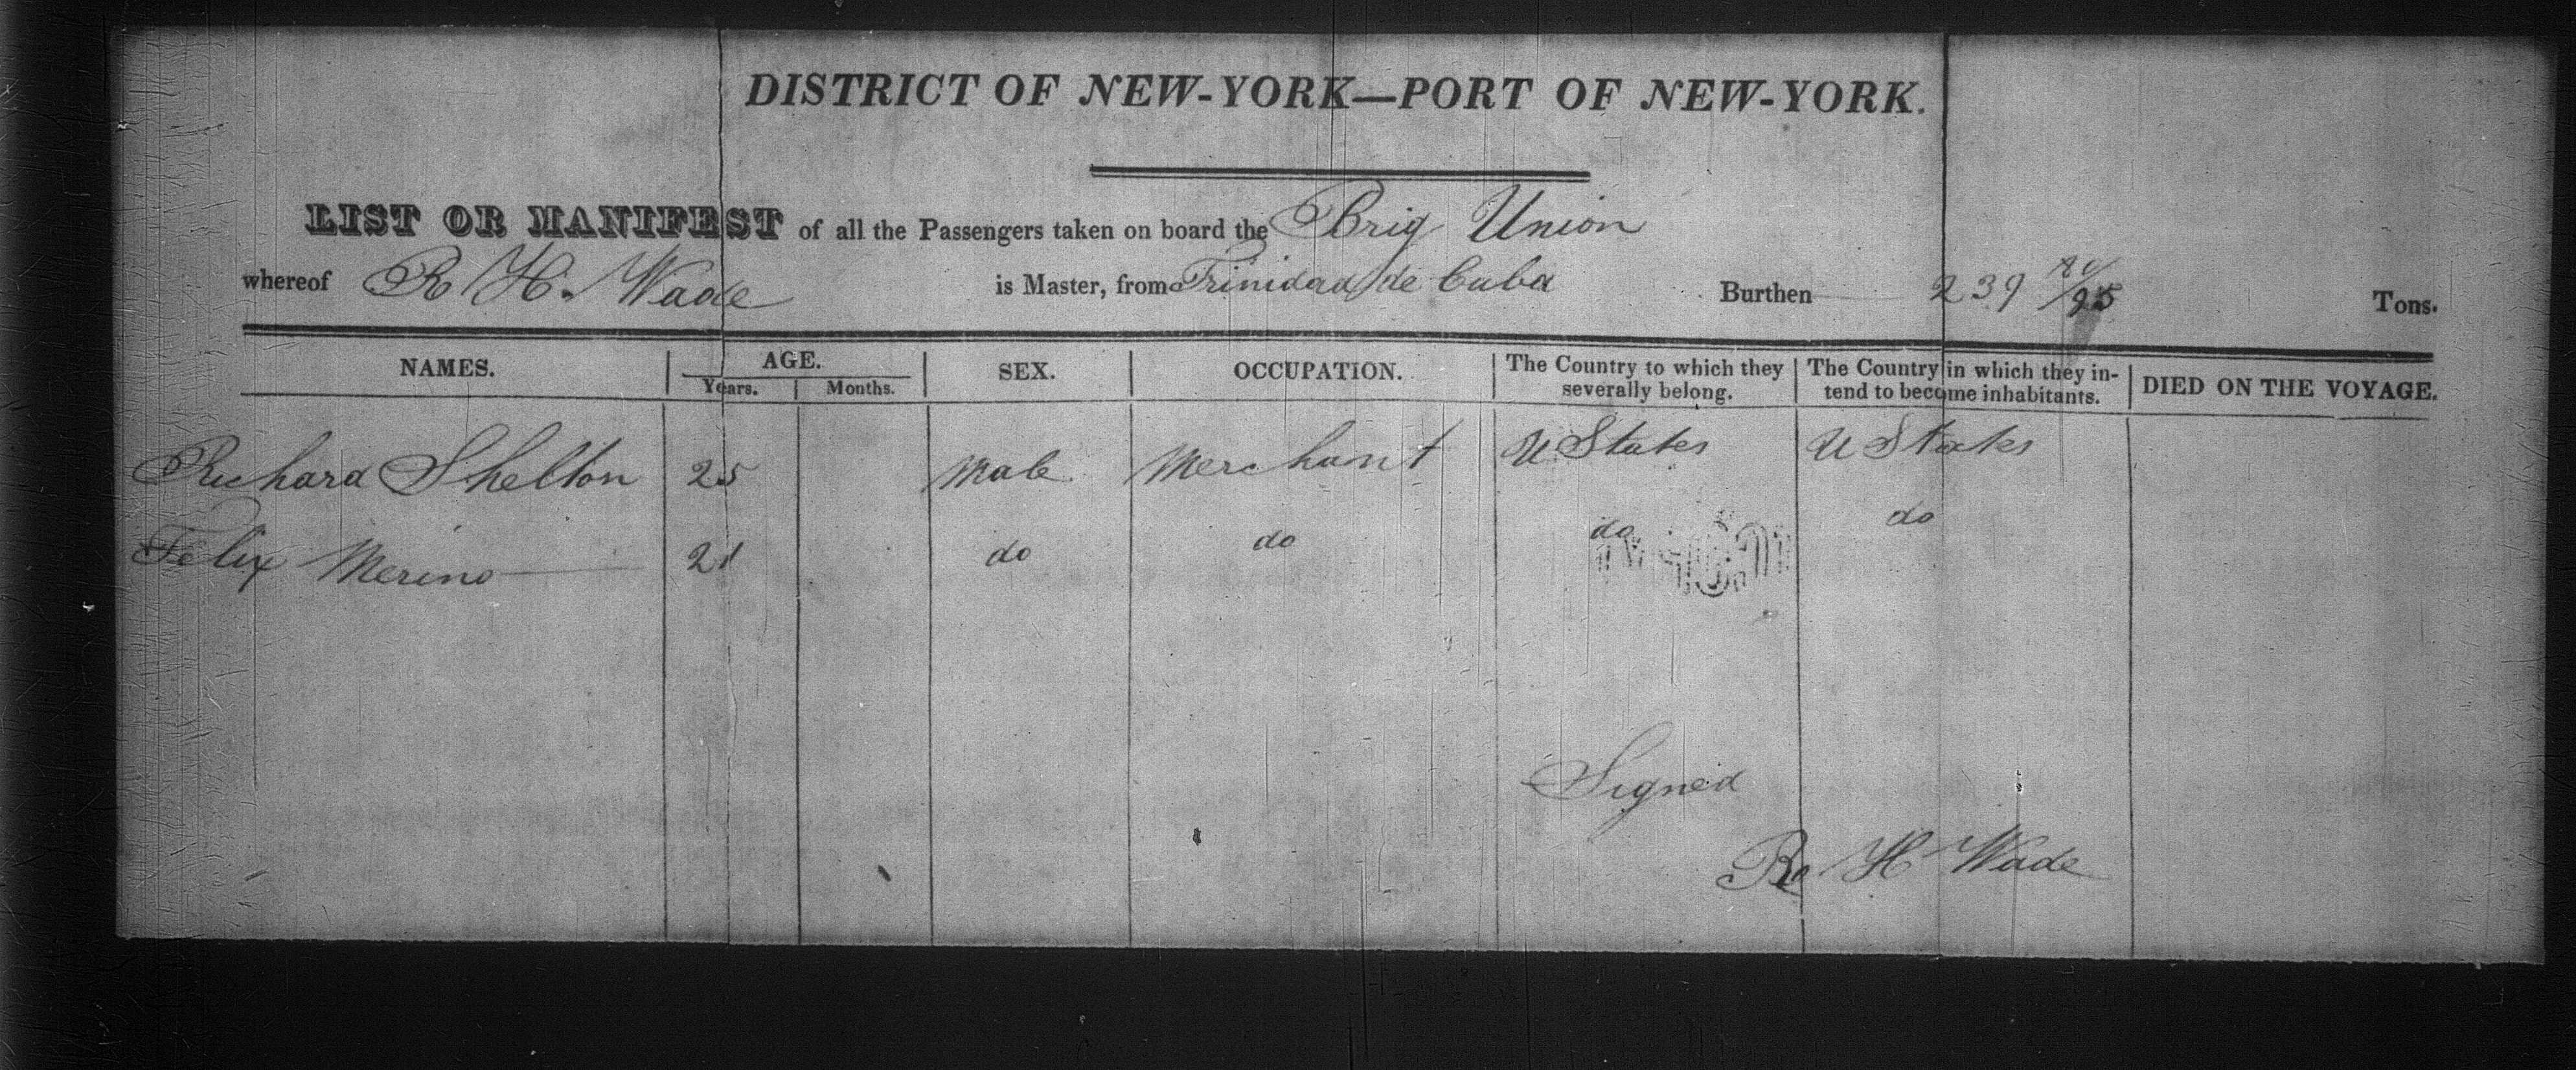 DISTRICT OF NEW-YORK—PORT OF NEW-YORK.
LIST OR MANIFEST of all the Passengers taken on board the Brig Union
whereof R H. Wade is Master, from Trinidad de Cuba Burthen 239 /95 Tons.
NAMES. AGE. Years. Months. SEX. OCCUPATION. The Country to which they severally belong. The Country in which they intend to become inhabitants. DIED ON THE VOYAGE.
Richard Shelton 25 Male Merchant U States U States
Felix Merino 21 do do do do
Signed
R H Wade